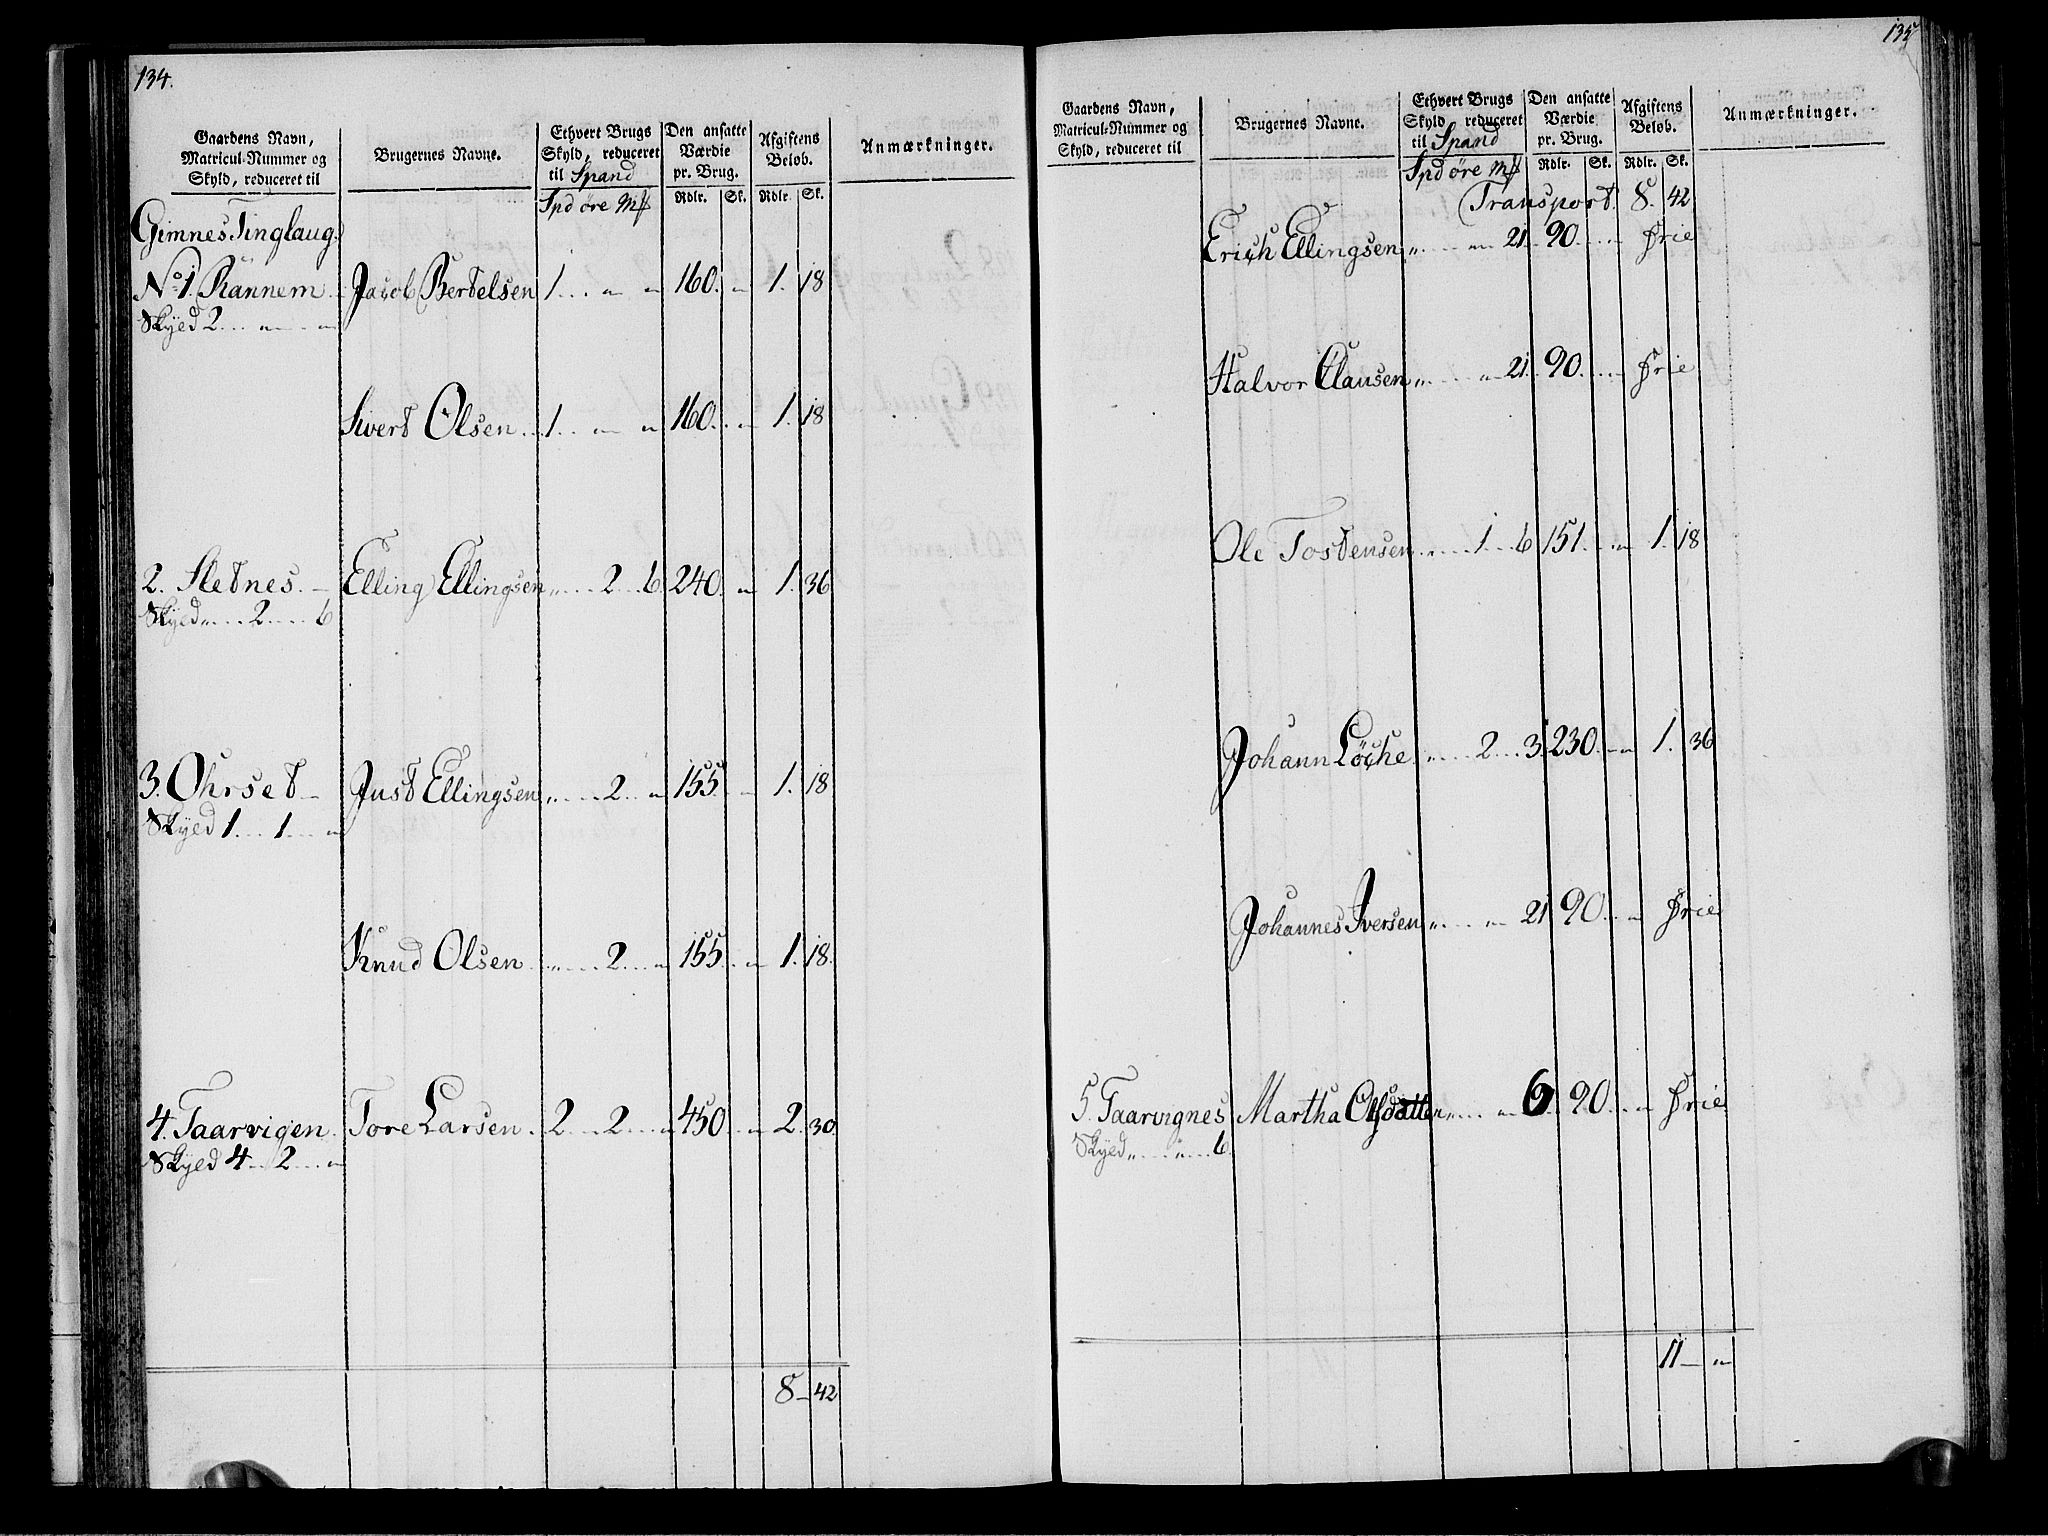 134.
Gaardens Navn, Matricul-Nummer og Skyld, reduceret til | Brugernes Navne. | Ethvert Brugs Skyld, reduceret til Spand | Den ansatte Værdie pr. Brug. | Afgiftens Beløb. | Anmærkninger.
Spd öre Mf | Rdlr. | Sk. | Rdlr. | Sk.
Gimnes Tinglaug.
No 1. Rannem | Jacob Bertelsen | 1 . . . " " | 160. " | 1. | 18
Skyed 2 . . . " . . . "
Sivert Olsen | 1 . . " " | 160. " | 1. | 18
2. Sletnes. | Elling Ellingsen | " . . . 2 . . 6. | 240. " | 1. | 36
Skyed " . . . 2 . . . 6
3. Ohrset | Just Ellingsen | " . . . 2 . . " | 155. | 1. | 18
Skyed 1 . . . 1 . . "
Knud Olsen | " . . . 2 . . " | 155. " | 1. | 18.
4. Taarvigen. | Tore Larsen. | 2 . . 2 . . " | 450. " | 2. | 30.
Skyed 4 . . 2 . . "
8 | 42
135
Gaardens Navn, Matricul-Nummer og Skyld, reduceret til | Brugernes Navne. | Ethvert Brugs Skyld, reduceret til Spand | Den ansatte Værdie pr. Brug. | Afgiftens Beløb. | Anmærkninger.
Spd öre Mf | Rdlr. | Sk. | Rdlr. | Sk.
Transport. | 8. | 42
Erich Ellingsen | " . . . " 21. | 90. . . " | frie
Halvor Clausen | " . . . " 21. | 90. . . " | frie
Ole Tostensen | " . . . 1 . . 6 | 151. . . " | 1. | 18
Johann Löche | " . . . 2 . . 3. | 230. . . " | 1. | 36
Johannes Iversen | " . . . " 21 | 90. . . " | frie
5. Taarvignes | Martha Olsdatter | " . . . " 6. | 90. . . " | frie
Skyed " . . . " . . . 6.
11 | "